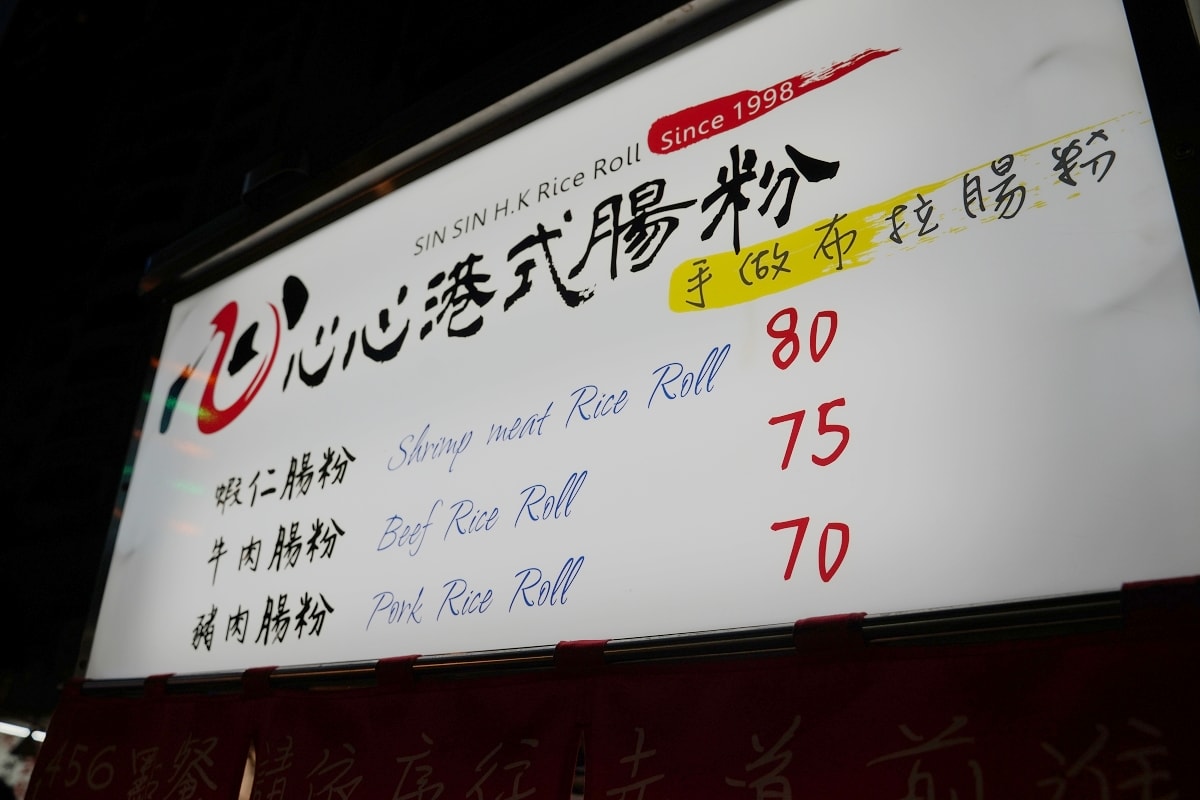 SIN SIN H.K Rice Roll Since 1998
心心港式腸粉
手做布拉腸粉
蝦仁腸粉 Shrimp meat Rice Roll 80
牛肉腸粉 Beef Rice Roll 75
豬肉腸粉 Pork Rice Roll 70
456點餐 請依序往走道前進